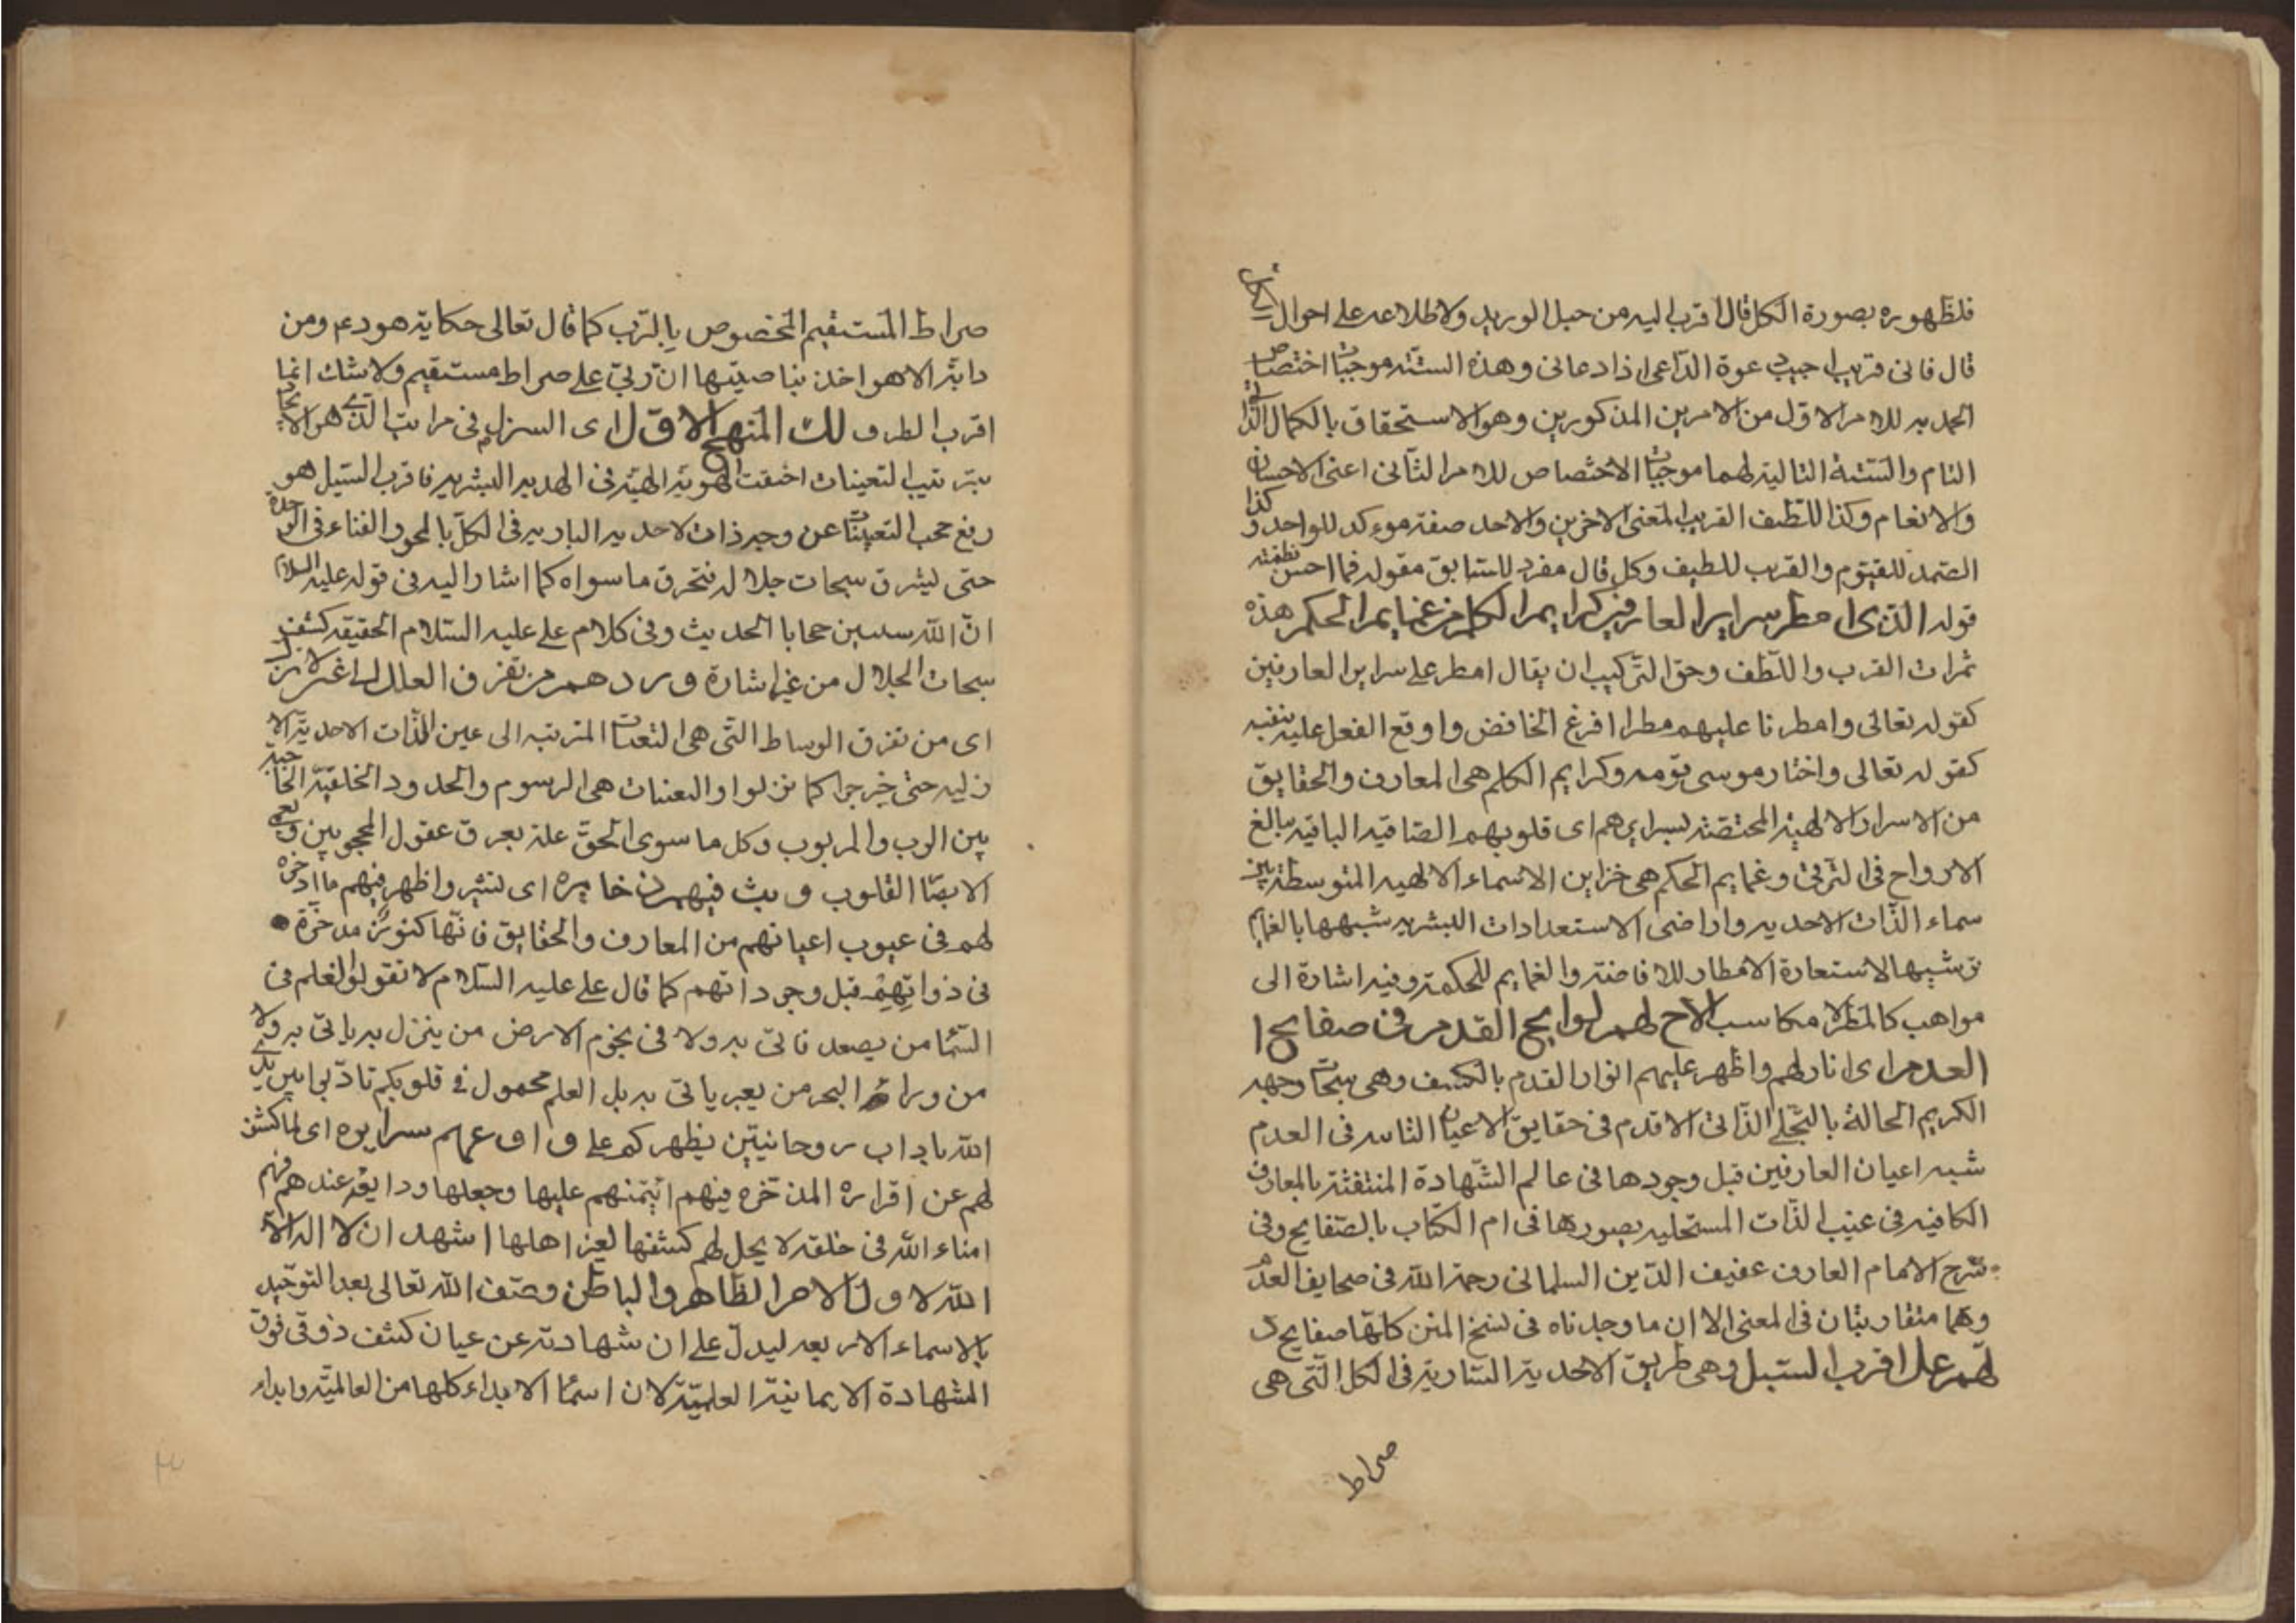 فلظهوره بصورة الكل قال اقرب اليه من حبل الوريد ولاطلاعه على احوال الكل
قال فانى قريب اجيب دعوة الداعى اذا دعانى وهذه الستة موجبات اختصاص
الحمد به للامر الاول من الامرين المذكورين وهو الاستحقاق بالكمال الذاتى
التام والستة التالية لهما موجبات الاختصاص للامر الثانى اعنى الاحسان
والانعام وكذا اللطيف القريب لمعنى الاخرين والاحد صفة موءكد للواحد وكذا
الصمد للقيوم والقرب للطيف وكل قال مفرد للسابق مقوله فما احسن نظمته
قوله الذى امطر سراير العارفين كرايم الكلم من غمايم الحكم هذه
ثمرات القرب واللطف وحق التركيب ان يقال امطر على سراير العارفين
كقوله تعالى وامطرنا عليهم مطرا افرغ الخافض واوقع الفعل عليه بنفسه
كقوله تعالى واختار موسى قومه وكرايم الكلم هى المعارف والحقايق
من الاسرار الالهية المختصة بسرايرهم اى قلوبهم الصافية الباقية مبالغ
الارواح فى الترقى وغمايم الحكم هى خزاين الاسماء الالهيه المتوسطة بين
سماء الذات الاحديه واراضى الاستعدادات البشريه شبهها بالغمايم
ترشيها لاستعارة الامطار للافاضة والغمايم للحكمة وفيه اشارة الى
مواهب كالمطر لا مكاسب الاح لهم لوايح القدم فى صفايح ا
العدم اى انار لهم واظهر عليهم انوار القدم بالكشف وهى سبحات وجهه
الكريم الحالة بالتجلى الذاتى الاقدم فى حقايق الاعيان الثابته فى العدم
شبه اعيان العارفين قبل وجودها فى عالم الشهادة المنتقشة بالمعارف
الكافيه فى غيب الذات المستحليه بصورها فى ام الكتاب بالصفايح وفى
شرح الامام العارف عفيف الدين السلمانى رحمة الله فى صحايف العدم
وهما متقاربتان فى المعنى الا ان ما وجدناه فى نسخ المتن كلها صفايح د
لهم على اقرب السبل وهى طريق الاحدية السارية فى الكل التى هى
صراط
صراط المستقيم المخصوص بالرب كما قال تعالى حكاية هود عم ومن
دابة الا هو اخذ بناصيتها ان ربى على صراط مستقيم ولا شك انها
اقرب الطرف لك المنهج الاول اى التنزل فى مراتب الذى هو الايجاد
بترتيب التعينات اختفت الهوية الالهية فى الهديه البشريه فاقرب السبيل هو
رفع حجب التعينات عن وجه ذات الاحديه الباريه فى الكل بالمحو والفناء فى الوحدة
حتى يشرق سبحات جلاله فتحرق ما سواه كما اشار اليه فى قوله عليه السلام
ان الله سبعين حجابا الحديث وفى كلام على عليه السلام الحقيقه كشف
سبحات الجلال من غير اشارة و ردهم من تفرق العلل الى عين الازل
اى من تفرق الوساط التى هى التعينات المترتبه الى عين الذات الاحدية الا
زليه حتى خرجوا كما نزلوا والتعينات هى الرسوم والحدود الخلقية الحاجبة
بين الرب والمربوب وكل ما سوى الحق علة تعرق عقول المحجوبين و
الابصار القلوب و بث فيهم ذخايره اى لنشر واظهر فيهم ما ادخره
لهم فى عيوب اعيانهم من المعارف والحقايق فانها كنوز مدخرة
فى ذواتهم قبل وجوداتهم كما قال على عليه السلام لا تقولوا العلم فى
السما من يصعد فاتى به ولا فى نجوم الارض من ينزل به ياتى به ولا
من وراء البحر من يعبر ياتى به بل العلم محمول فى قلوبكم تادبوا بين يدى
الله باداب روحانيين يظهر كم على و اودعهم سرايره اى لما كشف
لهم عن اقراره المدخره فيهم ائتمنهم عليها وجعلها ودايعة عندهم فهم
امناء الله فى خلقه لا يحل لهم كشفها لغير اهلها اشهد ان لا اله الا
الله الاول الاخر الظاهر والباطن وصف الله تعالى بعد التوحيد
بالاسماء الاربعه ليدل على ان شهادته عن عيان كشف ذوقى فوق
الشهادة الايمانية العلمية لان اسما الابداء كلها من العالمية وابداء